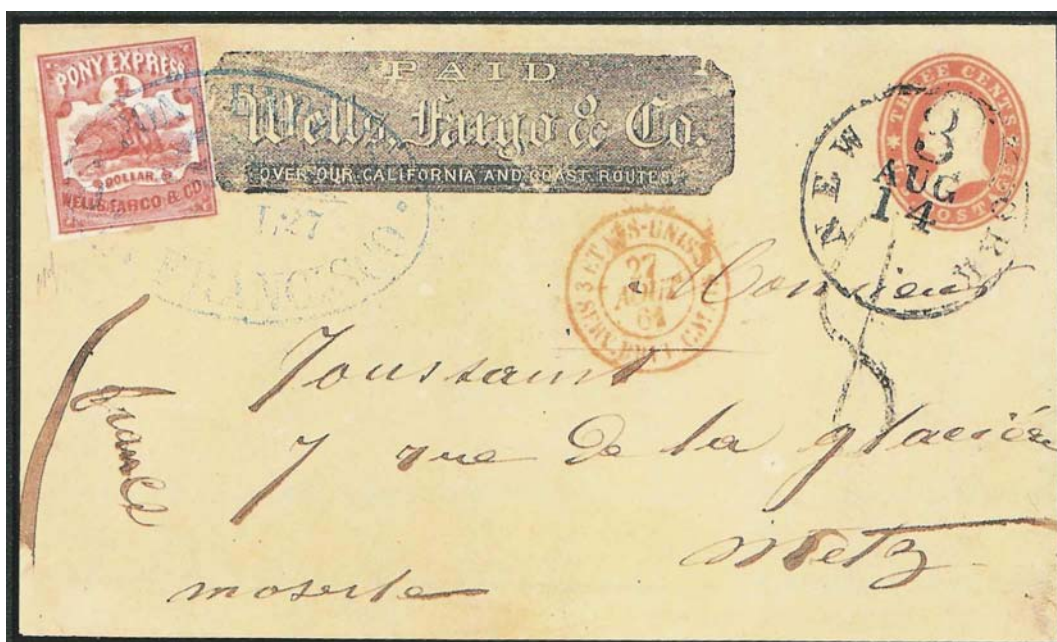 PONY EXPRESS
1
DOLLAR.
WELLS FARGO & CO
PAID
Wells, Fargo & Co.
OVER OUR CALIFORNIA AND COAST ROUTES.
THREE CENTS
POSTAGE
NEW YORK
3
AUG
14
FRANCISCO.
27
ETATS-UNIS
27
AOUT
61
Monsieur
Toussaint
7 rue de la glacière
Metz
moselle
france